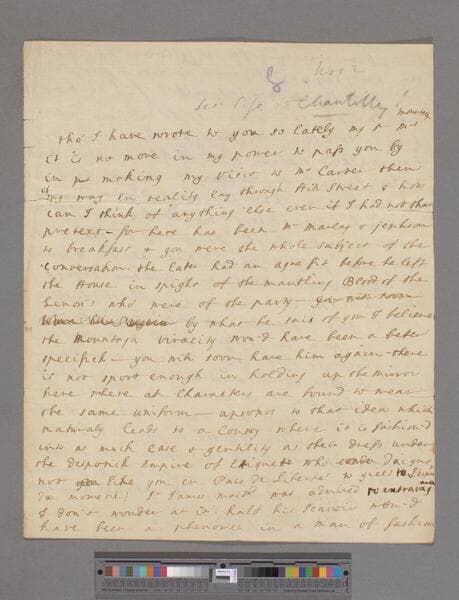 Nov 2
Chantilly
monday
tho I have wrote to you so lately my
it is no more in my power to pass you by
in making my Visit to Mr Carter then
if my way in reality lay through Hill Street & how
can I think of anything else even if I had not that
pretext – for here has been Mr & Jenhson
to breakfast & you were the whole subject of the
conversation the later had an ague fit before he left
the House in spight of the mantling Blood of the
who were of the party –
by what he said of you I believe
the Mountagu vivacity wou'd have been a better
specifick – you will soon have him again – there
is not sport enough in holding up the mirror
here where all Characters are bound to wear
the same uniform – apropos to that idea which
naturaly leads to a Country where it is fashion'd
with as much ease & gentility as their dress under
the despotick Empire of Etiquete who
not like you en Pais de Liberté to yield to
moment! St James was admired
I don't wonder at it half his wou'd
have been a phenomena in a man of fashion